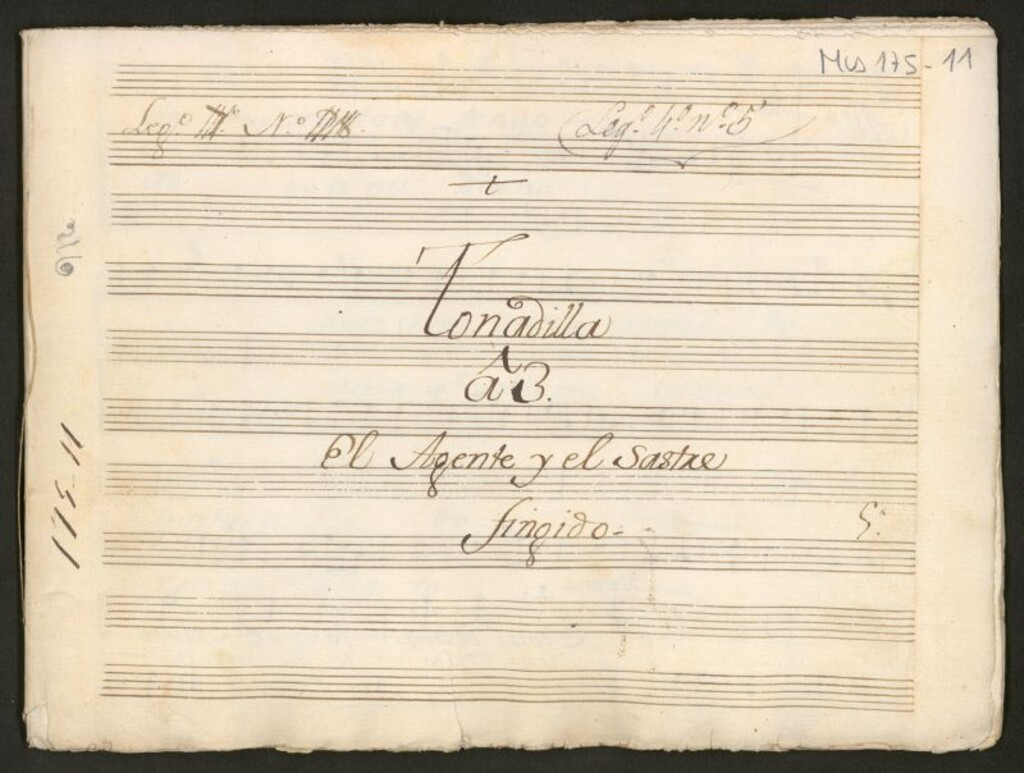 Mus 175-11
Leg.º N.º
Leg.º 4.º n.º 5º
Tonadilla
â 3.
El Agente y el Sastre
fingido
175-11